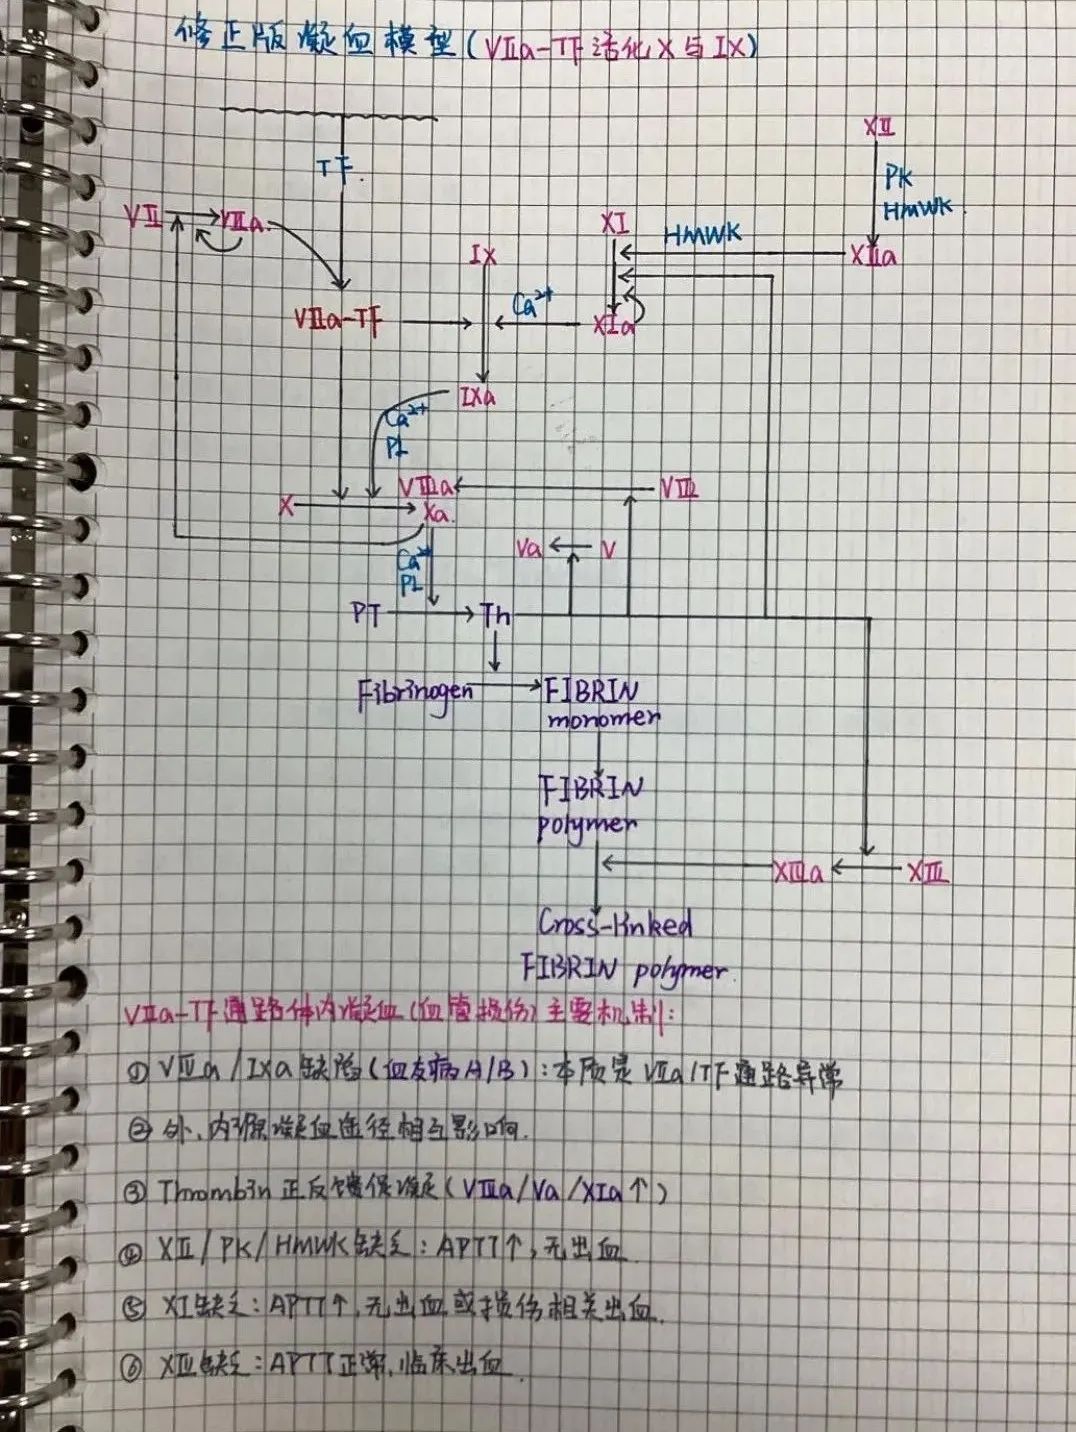 修正版凝血模型(VIIa-TF活化X与IX)
XII
TF.
PK
HMWK
VII VIIa.
XI HMWK
IX XIIa
Ca²⁺
VIIa-TF XIa
IXa
Ca²⁺
PL
VIIIa VIII
X Xa.
Va V
Ca²⁺
PL
PT Th
Fibrinogen FIBRIN
monomer
FIBRIN
polymer
XIIIa XIII
Cross-linked
FIBRIN polymer.
VIIa-TF通路体内凝血(血管损伤)主要机制:
① VIIIa/IXa缺陷(血友病A/B):本质是VIIa/TF通路异常
② 外、内源凝血途径相互影响.
③ Thrombin正反馈促凝(VIIIa/Va/XIa↑)
④ XII/PK/HMWK缺乏:APTT↑,无出血.
⑤ XI缺乏:APTT↑,无出血或损伤相关出血.
⑥ XIII缺乏:APTT正常,临床出血.